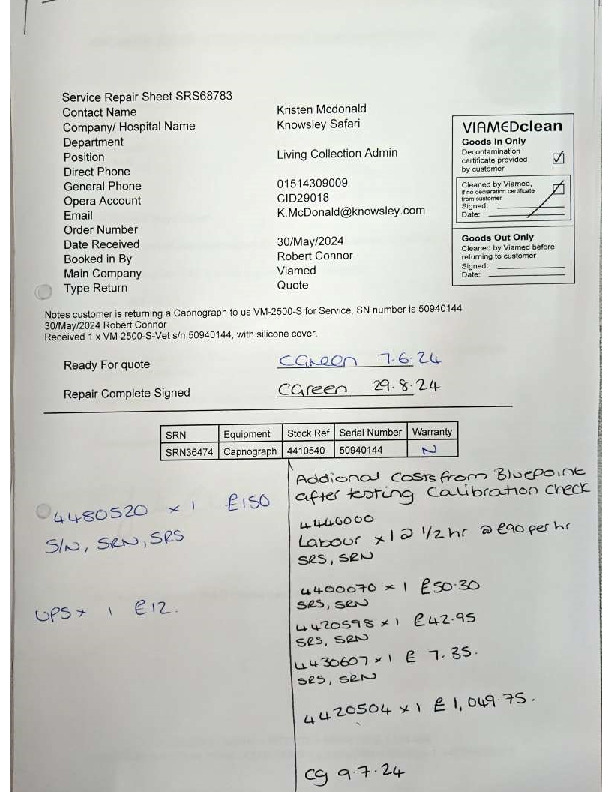 Service Repair Sheet SRS68783
Contact Name Kristen Mcdonald
Company/ Hospital Name Knowsley Safari
Department
Position Living Collection Admin
Direct Phone
General Phone 01514309009
Opera Account CID29018
Email K.McDonald@knowsley.com
Order Number
Date Received 30/May/2024
Booked in By Robert Connor
Main Company Viamed
Type Return Quote
VIAMEDclean
Goods In Only
Decontamination
certificate provided
by customer
Cleaned by Viamed,
if no decontamination certificate
from customer
Signed:
Date:
Goods Out Only
Cleaned by Viamed before
returning to customer
Signed:
Date:
Notes customer is returning a Capnograph to us VM-2500-S for Service, SN number is 50940144
30/May/2024 Robert Connor
Received 1 x VM-2500-S-Vet s/n 50940144, with silicone cover.
Ready For quote CGreen 7.6.24
Repair Complete Signed CGreen 29.8.24
SRN Equipment Stock Ref Serial Number Warranty
SRN36474 Capnograph 4410540 50940144 N
4480520 x 1 £150
S/N, SRN, SRS
UPS x 1 £12.
Addional Costs from Bluepoint
after testing Calibration Check
4446000
Labour x 1 @ 1/2 hr @ £90 per hr
SRS, SRN
4400070 x 1 £50.30
SRS, SRN
4420598 x 1 £42.95
SRS, SRN
4430607 x 1 £ 7.35.
SRS, SRN
4420504 x 1 £1,049.75.
CG 9.7.24